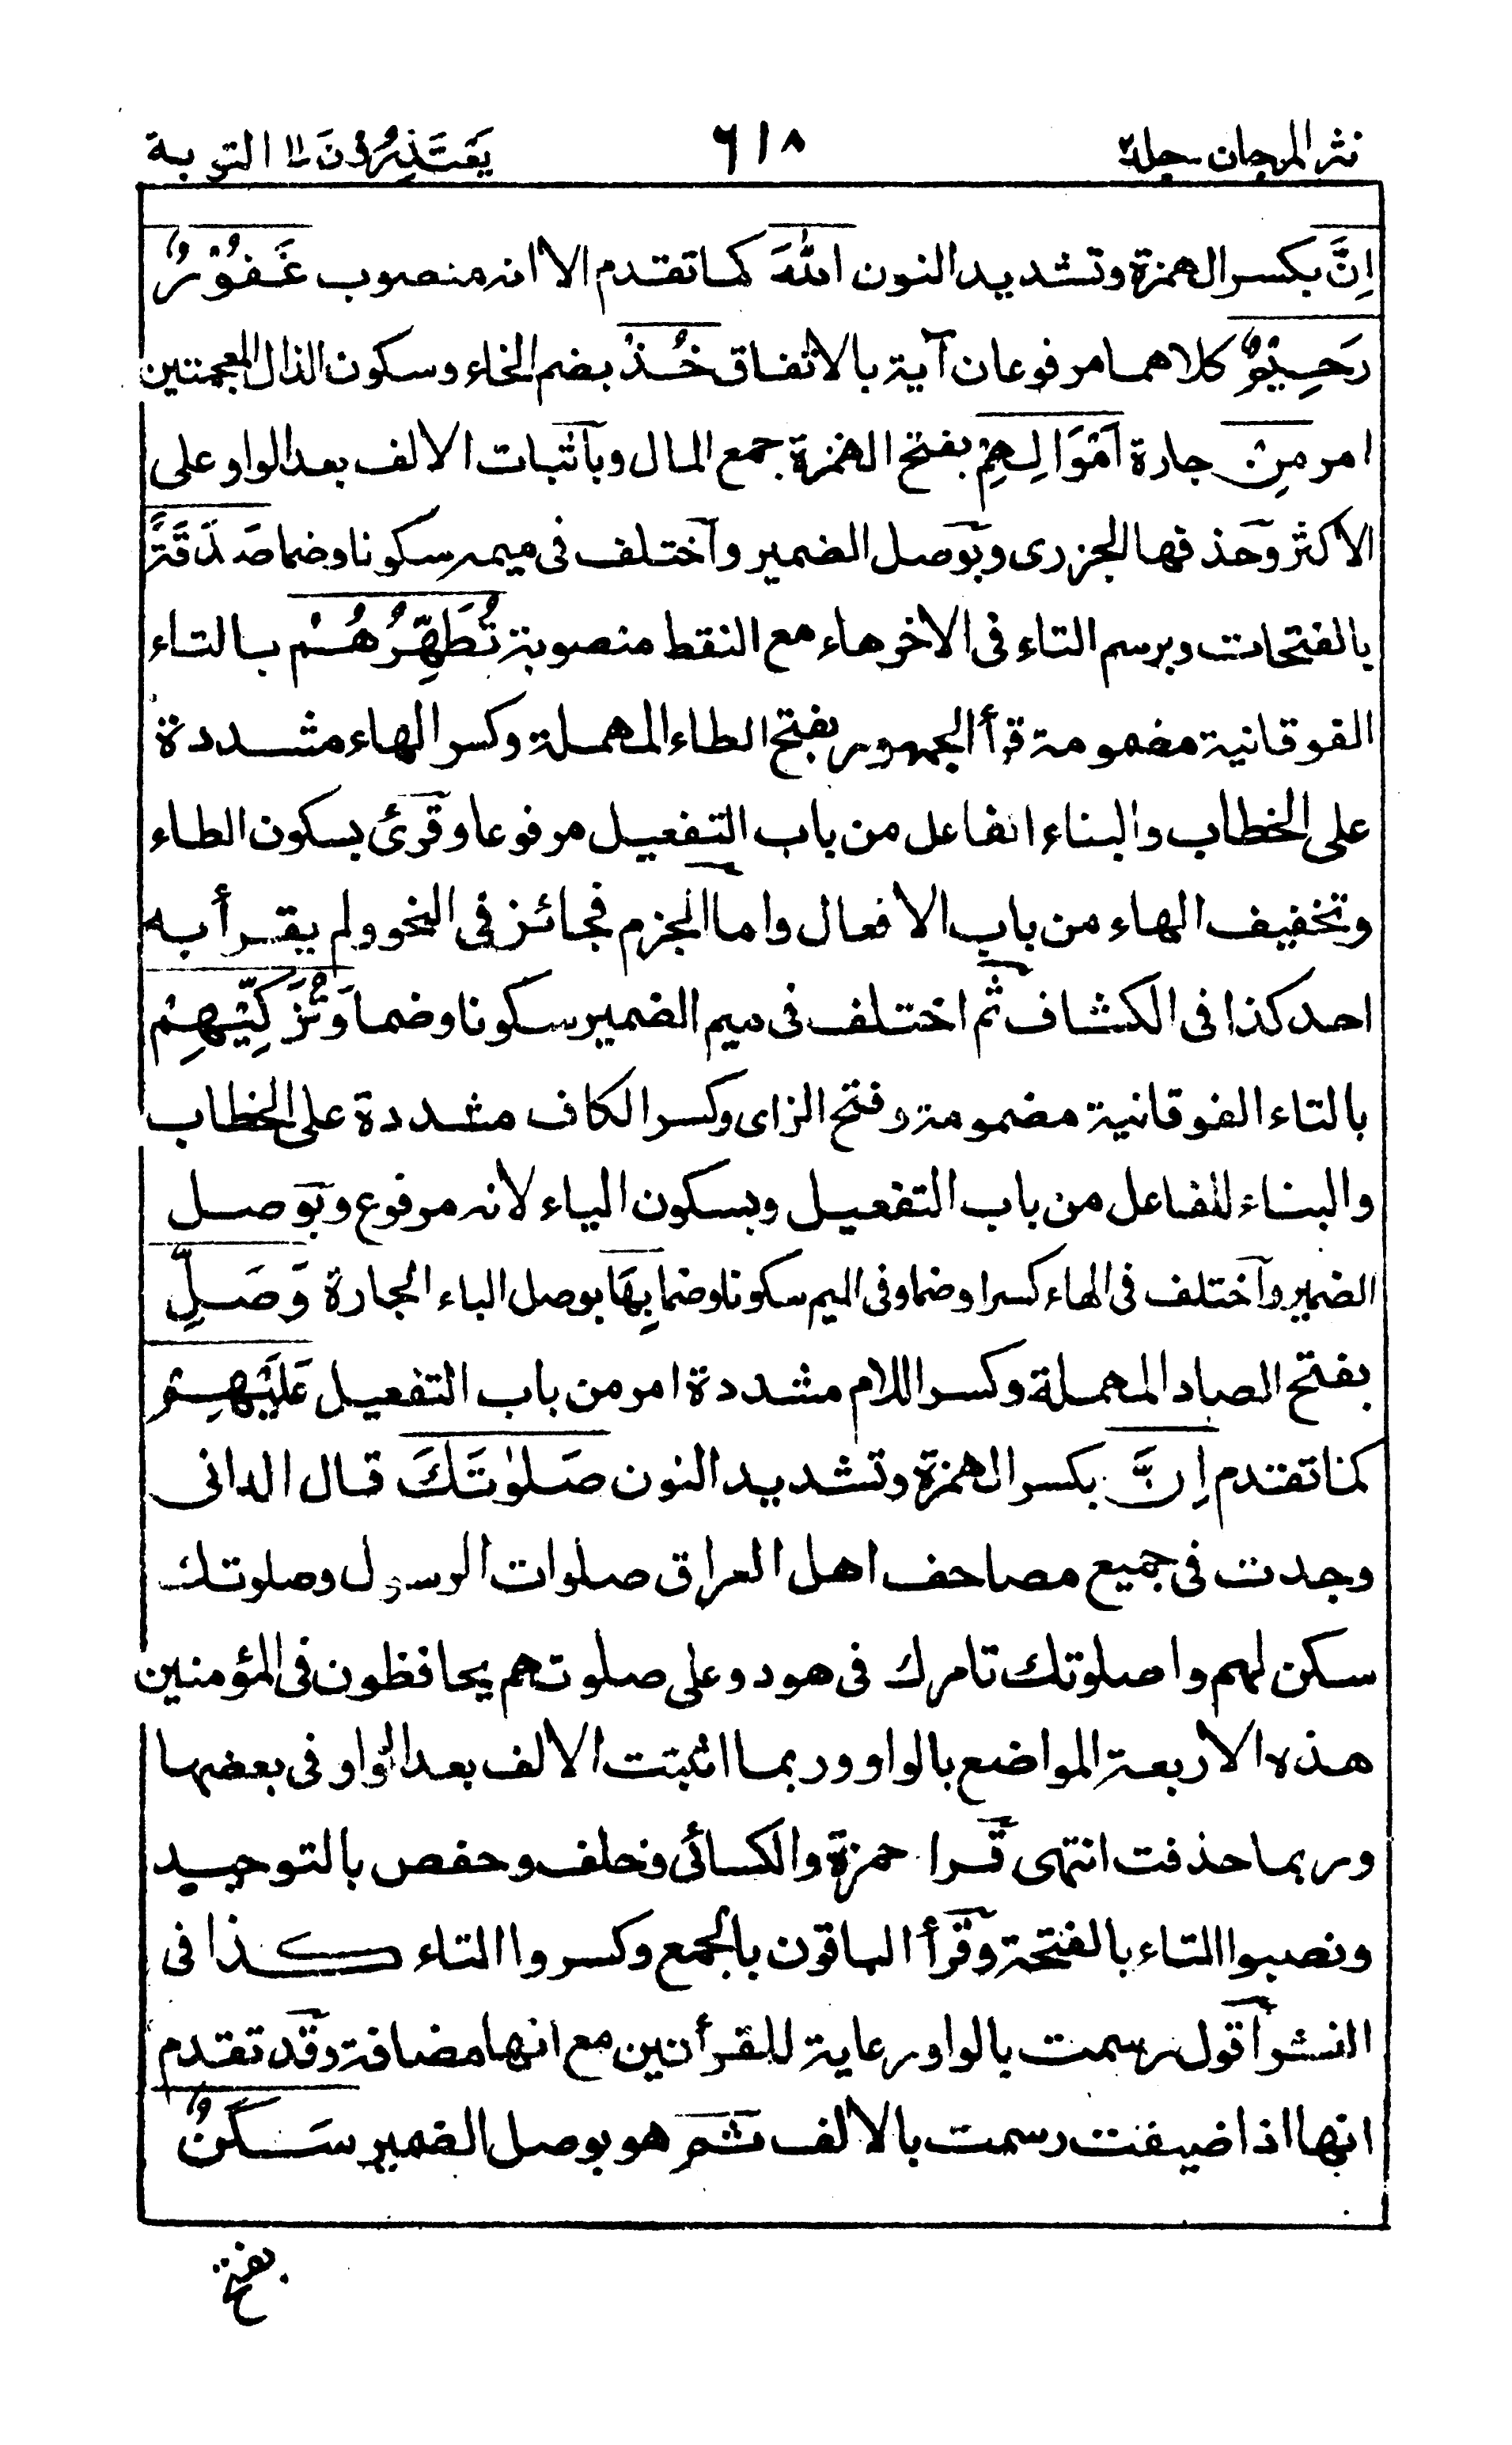 نثر المرجان جلد٢ ٦١٨ يَعْتَذِرُوْنَ ١١ التوبة
اِنَّ بكسر الهمزة وتشديد النون اللهَ كما تقدم الا انه منصوب غَفُوْرٌ
رَحِيْمٌ كلاهما مرفوعان آية بالاتفاق خُذْ بضم الخاء وسكون الذال المعجمتين
امر مِنْ جارة اَمْوَالِهِمْ بفتح الهمزة جمع المال وباثبات الالف بعد الواو على
الاكثر وحذفها الجزرى وبوصل الضمير واختلف فى ميمه سكونا وضما صَدَقَةً
بالفتحات وبرسم التاء فى الاخر هاء مع النقط منصوبة تُطَهِّرُهُمْ بالتاء
الفوقانية مضمومة قرأ الجمهور بفتح الطاء المهملة وكسر الهاء مشددة
على الخطاب والبناء للفاعل من باب التفعيل مرفوعا وقرئ بسكون الطاء
وتخفيف الهاء من باب الافعال واما الجزم فجائز فى النحو ولم يقرأ به
احد كذا فى الكشاف ثم اختلف فى ميم الضمير سكونا وضما وَتُزَكِّيْهِمْ
بالتاء الفوقانية مضمومة وفتح الزاى وكسر الكاف مشددة على الخطاب
والبناء للفاعل من باب التفعيل وبسكون الياء لانه مرفوع وبوصل
الضمير واختلف فى الهاء كسرا وضما وفى الميم سكونا وضما بِهَا بوصل الباء الجارة وَصَلِّ
بفتح الصاد المهملة وكسر اللام مشددة امر من باب التفعيل عَلَيْهِمْ
كما تقدم اِنَّ بكسر الهمزة وتشديد النون صَلٰوتَكَ قال الدانى
وجدت فى جميع مصاحف اهل العراق صلوات الرسول وصلوتك
سكن لهم واصلوتك تامرك فى هود وعلى صلوتهم يحافظون فى المؤمنين
هذه الاربعة المواضع بالواو وربما اثبتت الالف بعد الواو فى بعضها
وربما حذفت انتهى قرا حمزة والكسائى وخلف وحفص بالتوحيد
ونصبوا التاء بالفتحة وقرأ الباقون بالجمع وكسروا التاء كذا فى
النشر اقول رسمت بالواو رعاية للقرأتين مع انها مضافة وقد تقدم
انها اذا ضيفت رسمت بالالف ثم هو بوصل الضمير سَكَنٌ
بفتح